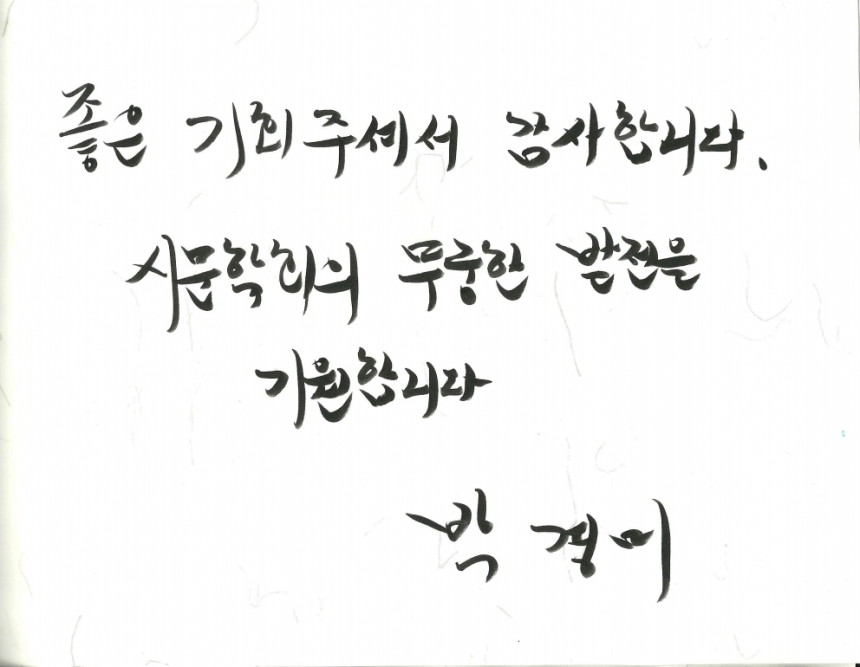 좋은 기회주셔서 감사합니다.
시문학회의 무궁한 발전을
기원합니다
박경미